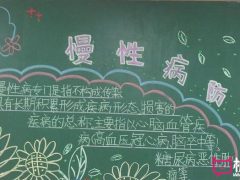 慢性病防
慢性病专门是指不构成传染
具有长期积累形成疾病形态损害的
疾病的总称.主要指以心脑血管疾
病(高血压冠心病脑卒中
糖尿病恶性肿